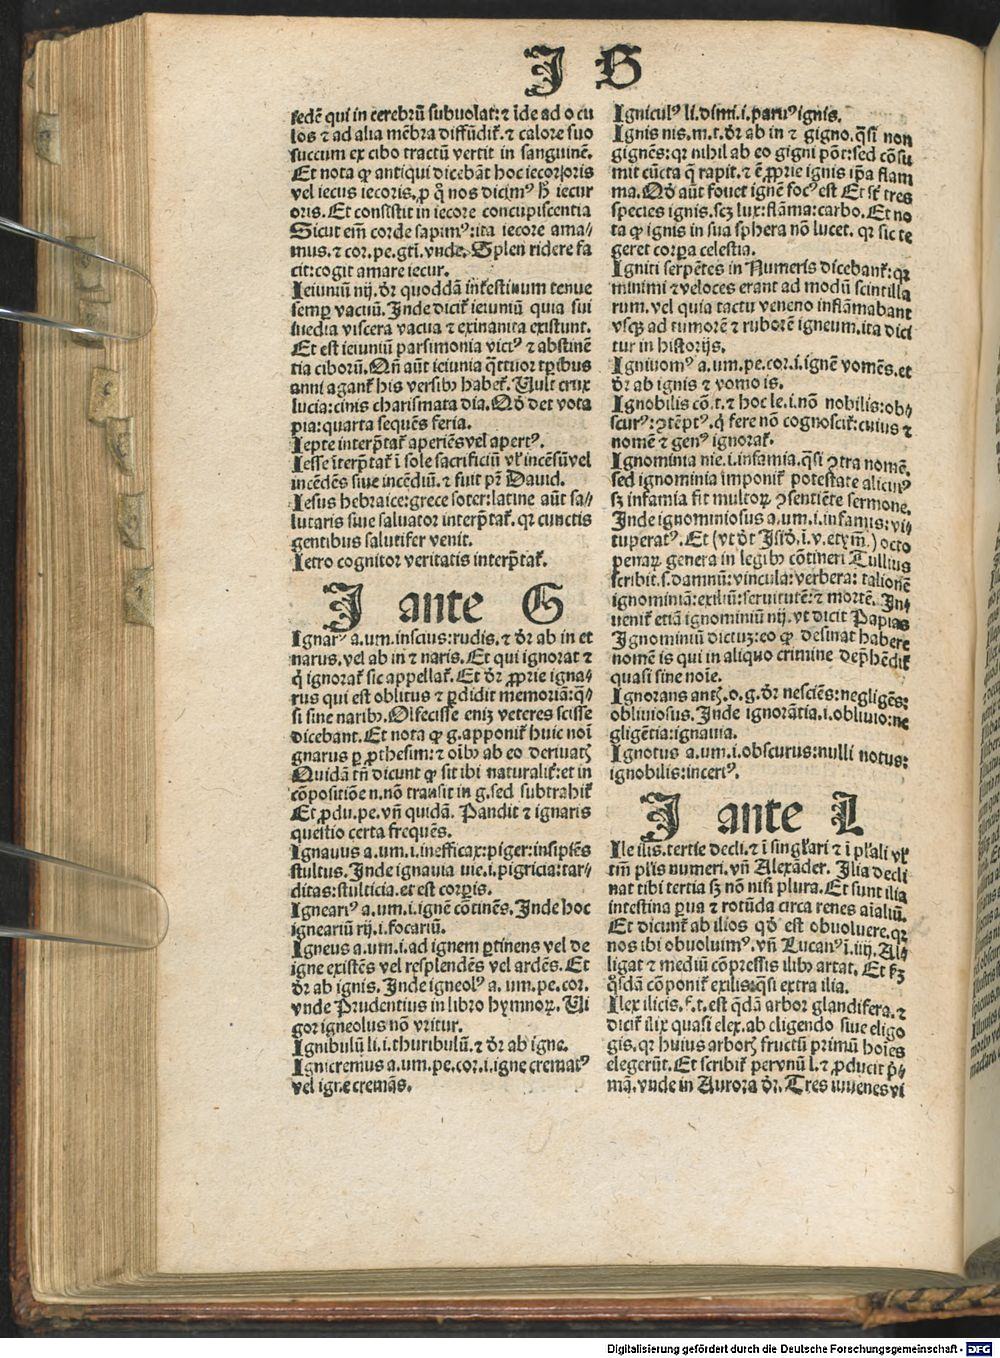 J G
sedē qui in cerebrū subuolat: ⁊ īde ad ocu
los ⁊ ad alia mēbra diffūdit̄. ⁊ calore suo
succum ex cibo tractū vertit in sanguinē.
Et nota ꝙ antiqui dicebāt hoc iecor/oris
vel iecus iecoris. ꝓ q̄ nos dicimꝰ h̄ iecur
oris. Et consistit in iecore concupiscentia
Sicut em̄ corde sapimꝰ: ita iecore ama/
mus. ⁊ cor. pe. gti. vnde. Splen ridere fa
cit: cogit amare iecur.
Ieiuniū nij. dr̄ quoddā intestinum tenue
semꝑ vacuū. Inde dicit̄ ieiuniū quia sui
inedia viscera vacua ⁊ exinanita existunt.
Et est ieiuniū parsimonia victꝰ ⁊ abstinē
tia ciborū. Qn̄ aūt ieiunia q̄ttuor tꝑibus
anni agant̄ his versibꝫ habet̄. Vult crux
lucia: cinis charismata dia. Qd̄ det vota
pia: quarta sequēs feria.
Iepte interp̄tat̄ aperiēs vel apertꝰ.
Iesse īterp̄tat̄ ī sole sacrificiū vl̄ incēsū vel
incēdēs siue incēdiū. ⁊ fuit pr̄ Dauid.
Iesus hebraice: grece soter: latine aūt sa/
lutaris siue saluator interp̄tat̄. qr cunctis
gentibus salutifer venit.
Ietro cognitor veritatis interp̄tat̄.
J ante G
Ignarꝰ a.um. inscius: rudis. ⁊ dr̄ ab in et
narus. vel ab in ⁊ naris. Et qui ignorat ⁊
q̄ ignorat̄ sic appellat̄. Et dr̄ ꝓprie igna/
rus qui est oblitus ⁊ ꝑdidit memoriā: q̄/
si sine naribꝫ. Olfecisse eniꝫ veteres scisse
dicebant. Et nota ꝙ g. apponit̄ huic noī
gnarus ꝑ ꝓthesim: ⁊ oībꝫ ab eo deriuatꝭ
Quidā tn̄ dicunt ꝙ sit ibi naturalit̄: et in
cōpositiōe n. nō transit in g. sed subtrahit̄
Et ꝓdu. pe. vn̄ quidā. Pandit ⁊ ignaris
questio certa frequēs.
Ignauus a.um. i. inefficax: piger: insipiēs
stultus. Inde ignauia uie. i. pigricia: tar/
ditas: stulticia. et est corꝑis.
Ignearꝰ a.um. i. ignē cōtinēs. Inde hoc
igneariū rij. i. focariū.
Igneus a.um. i. ad ignem ꝑtinens vel de
igne existēs vel resplendēs vel ardēs. Et
dr̄ ab ignis. Inde igneolꝰ a. um. pe. cor.
vnde Prudentius in libro hymnoꝝ. Vi
gor igneolus nō vritur.
Ignibulū li. i. thuribulū. ⁊ dr̄ ab igne.
Ignicremus a.um. pe. cor. i. igne crematꝰ
vel igne cremās.
Igniculꝰ li. dimi. i. paruꝰ ignis.
Ignis nis. m. t. dr̄ ab in ⁊ gigno. q̄si non
gignēs: qr nihil ab eo gigni pōt: sed cōsu
mit cūcta q̄ rapit. ⁊ ē ꝓprie ignis ip̄a flam
ma. Qd̄ aūt fouet ignē focꝰ est Et sūt tres
species ignis. scꝫ lux: flāma: carbo. Et no
ta ꝙ ignis in sua sphera nō lucet. qr sic te
geret corꝑa celestia.
Igniti serpētes in Numeris dicebant̄: qr
minimi ⁊ veloces erant ad modū scintilla
rum. vel quia tactu veneno inflāmabant
vsqꝫ ad tumorē ⁊ ruborē igneum. ita dici
tur in historijs.
Igniuomꝰ a. um. pe. cor. i. ignē vomēs. et
dr̄ ab ignis ⁊ vomo is.
Ignobilis cō. t. ⁊ hoc le. i. nō nobilis: ob/
scurꝰ: ꝯtēptꝰ. q̄ fere nō cognoscit̄: cuius ⁊
nomē ⁊ genꝰ ignorat̄.
Ignominia nie. i. infamia. q̄si ꝯtra nomē.
sed ignominia imponit̄ potestate alicuiꝰ
sꝫ infamia fit multoꝝ ꝯsentiēte sermone.
Inde ignominiosus a. um. i. infamis: vi/
tuperatꝰ. Et (vt dt̄ Isid̄. i. v. etym̄.) octo
penaꝝ genera in legibꝫ cōtineri Tullius
scribit. s. damnū: vincula: verbera: talionē
ignominiā: exiliū: seruitutē: ⁊ mortē. In/
uenit̄ etiā ignominiū nij. vt dicit Papias
Ignominiū dictuꝫ: eo ꝙ desinat habere
nomē is qui in aliquo crimine dep̄hēdit̄
quasi sine noīe.
Ignorans antꝭ. o. g. dr̄ nesciēs: negligēs:
obliuiosus. Inde ignorātia. i. obliuio: ne
gligētia: ignauia.
Ignotus a. um. i. obscurus: nulli notus:
ignobilis: incertꝰ.
J ante L
Ile ilis. tertie decli. ⁊ ī singl̄ari ⁊ ī pl̄ali vl̄
tm̄ pl̄is numeri. vn̄ Alexāder. Ilia decli
nat tibi tertia sꝫ nō nisi plura. Et sunt ilia
intestina ꝑua ⁊ rotūda circa renes aīaliū.
Et dicunt̄ ab ilios qd̄ est obuoluere. qr
nos ibi obuoluimꝰ. vn̄ Lucanꝰ ī. iiij. Al/
ligat ⁊ mediū cōpressis ilibꝫ artat. Et
q̄sdā cōponit̄ exilis: q̄si extra ilia.
Ilex ilicis. f. t. est q̄dā arbor glandifera. ⁊
dicit̄ ilix quasi elex. ab eligendo siue eligo
gis. qr huius arborꝭ fructū primū hoīes
elegerūt. Et scribit̄ per vnū l. ⁊ ꝓducit p̄/
mā. vnde in Aurora dr̄. Tres iuuenes vi
Digitalisierung gefördert durch die Deutsche Forschungsgemeinschaft - DFG